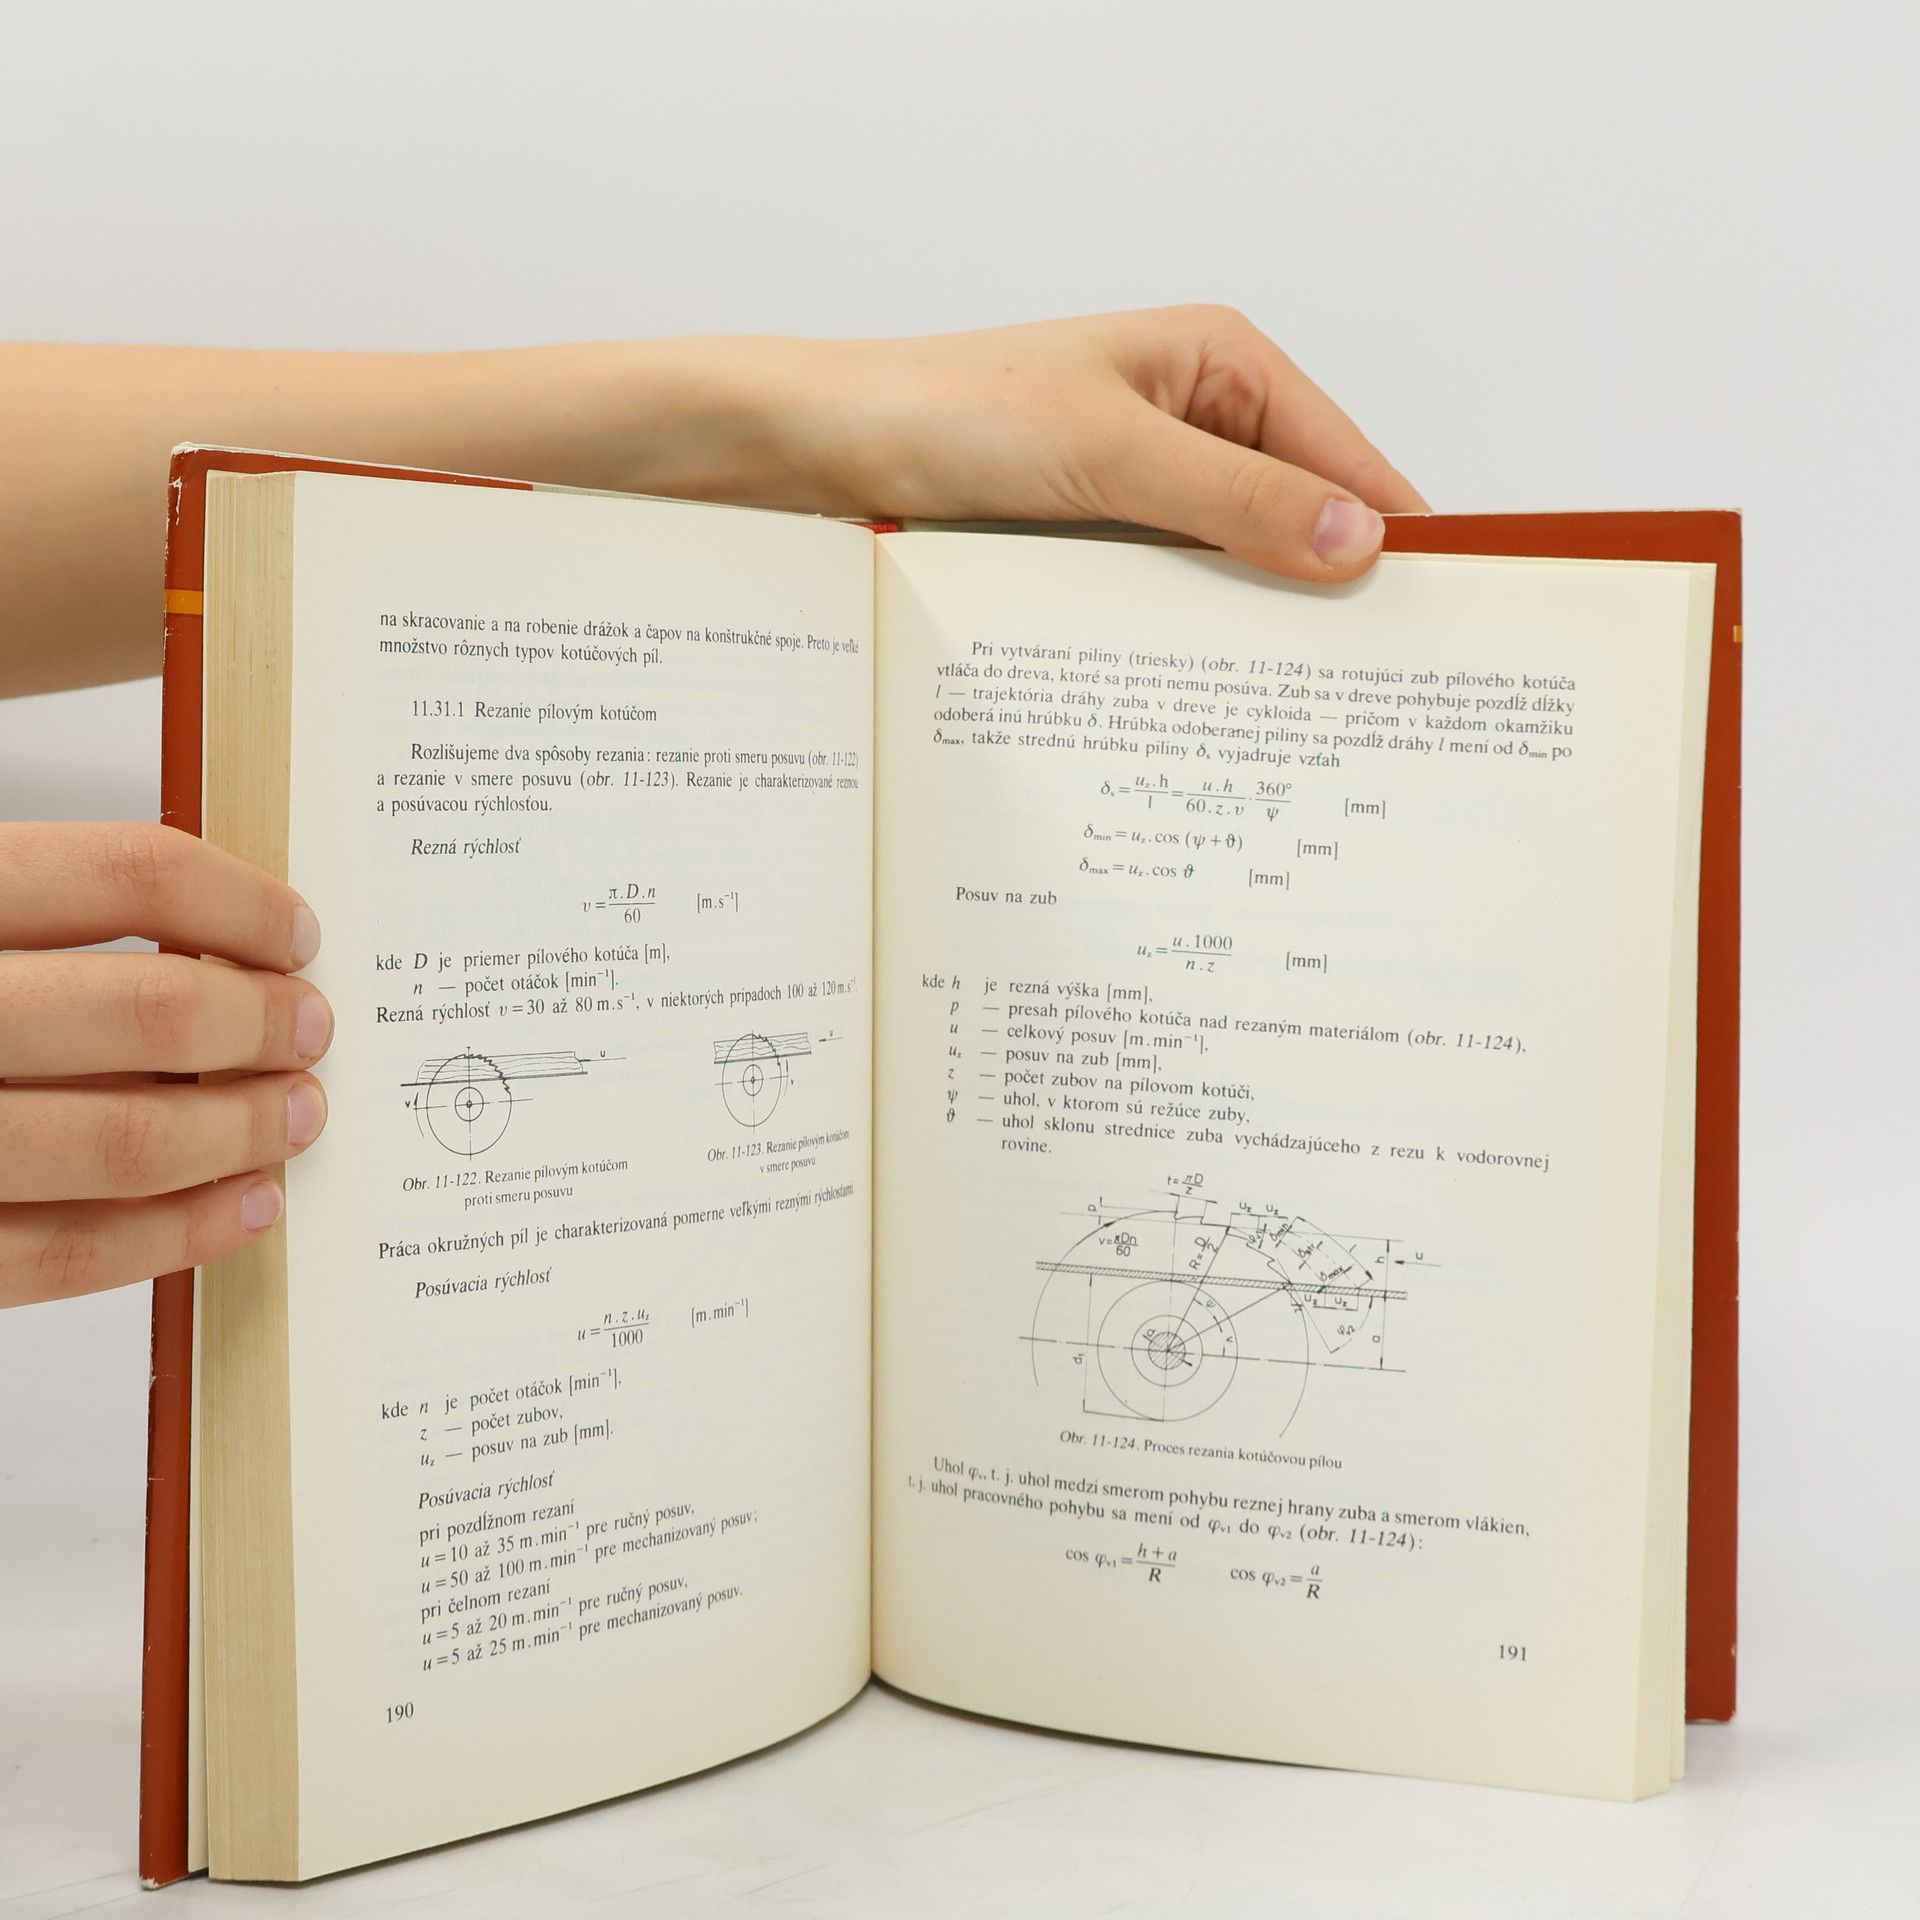 na skracovanie a na robenie drážok a čapov na konštrukčné spoje. Preto je veľké
množstvo rôznych typov kotúčových píl.
11.31.1 Rezanie pílovým kotúčom
Rozlišujeme dva spôsoby rezania: rezanie proti smeru posuvu (obr. 11-122)
a rezanie v smere posuvu (obr. 11-123). Rezanie je charakterizované reznou
a posúvacou rýchlosťou.
Rezná rýchlosť
v = π.D.n / 60 [m.s⁻¹]
kde D je priemer pílového kotúča [m],
n — počet otáčok [min⁻¹].
Rezná rýchlosť v = 30 až 80 m.s⁻¹, v niektorých prípadoch 100 až 120 m.s⁻¹.
u
v
u
v
Obr. 11-122. Rezanie pílovým kotúčom
proti smeru posuvu
Obr. 11-123. Rezanie pílovým kotúčom
v smere posuvu
Práca okružných píl je charakterizovaná pomerne veľkými reznými rýchlosťami.
Posúvacia rýchlosť
u = n.z.u_z / 1000 [m.min⁻¹]
kde n je počet otáčok [min⁻¹],
z — počet zubov,
u_z — posuv na zub [mm].
Posúvacia rýchlosť
pri pozdĺžnom rezaní
u = 10 až 35 m.min⁻¹ pre ručný posuv,
u = 50 až 100 m.min⁻¹ pre mechanizovaný posuv;
pri čelnom rezaní
u = 5 až 20 m.min⁻¹ pre ručný posuv,
u = 5 až 25 m.min⁻¹ pre mechanizovaný posuv.
190
Pri vytváraní piliny (triesky) (obr. 11-124) sa rotujúci zub pílového kotúča
vtláča do dreva, ktoré sa proti nemu posúva. Zub sa v dreve pohybuje pozdĺž dĺžky
l — trajektória dráhy zuba v dreve je cykloida — pričom v každom okamžiku
odoberá inú hrúbku δ. Hrúbka odoberanej piliny sa pozdĺž dráhy l mení od δ_min po
δ_max, takže strednú hrúbku piliny δ_s vyjadruje vzťah
δ_s = u_z.h / l = u.h / 60.z.v . 360° / ψ [mm]
δ_min = u_z.cos (ψ + ϑ) [mm]
δ_max = u_z.cos ϑ [mm]
Posuv na zub
u_z = u.1000 / n.z [mm]
kde h je rezná výška [mm],
p — presah pílového kotúča nad rezaným materiálom (obr. 11-124),
u — celkový posuv [m.min⁻¹],
u_z — posuv na zub [mm],
z — počet zubov na pílovom kotúči,
ψ — uhol, v ktorom sú režúce zuby,
ϑ — uhol sklonu strednice zuba vychádzajúceho z rezu k vodorovnej
rovine.
t = πD / z
p
v = πDn / 60
R = D / 2
u_z u_z
δ_min
δ_str
δ_max
l
h
u
u_z u_z
ψ
a
d
d₁
Obr. 11-124. Proces rezania kotúčovou pílou
Uhol φ_v, t. j. uhol medzi smerom pohybu reznej hrany zuba a smerom vlákien,
t. j. uhol pracovného pohybu sa mení od φ_v1 do φ_v2 (obr. 11-124):
cos φ_v1 = h + a / R cos φ_v2 = a / R
191